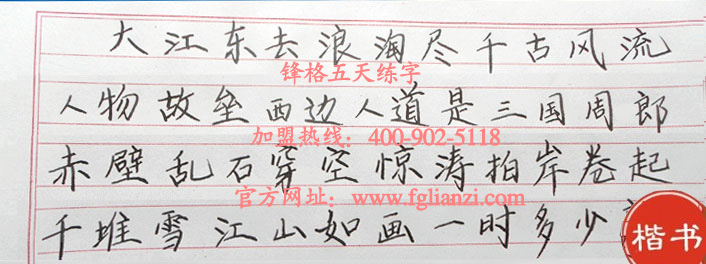 大江东去浪淘尽千古风流
锋格五天练字
人物故垒西边人道是三国周郎
加盟热线：400-902-5118
赤壁乱石穿空惊涛拍岸卷起
官方网址：www.fglianzi.com
千堆雪江山如画一时多少
楷书